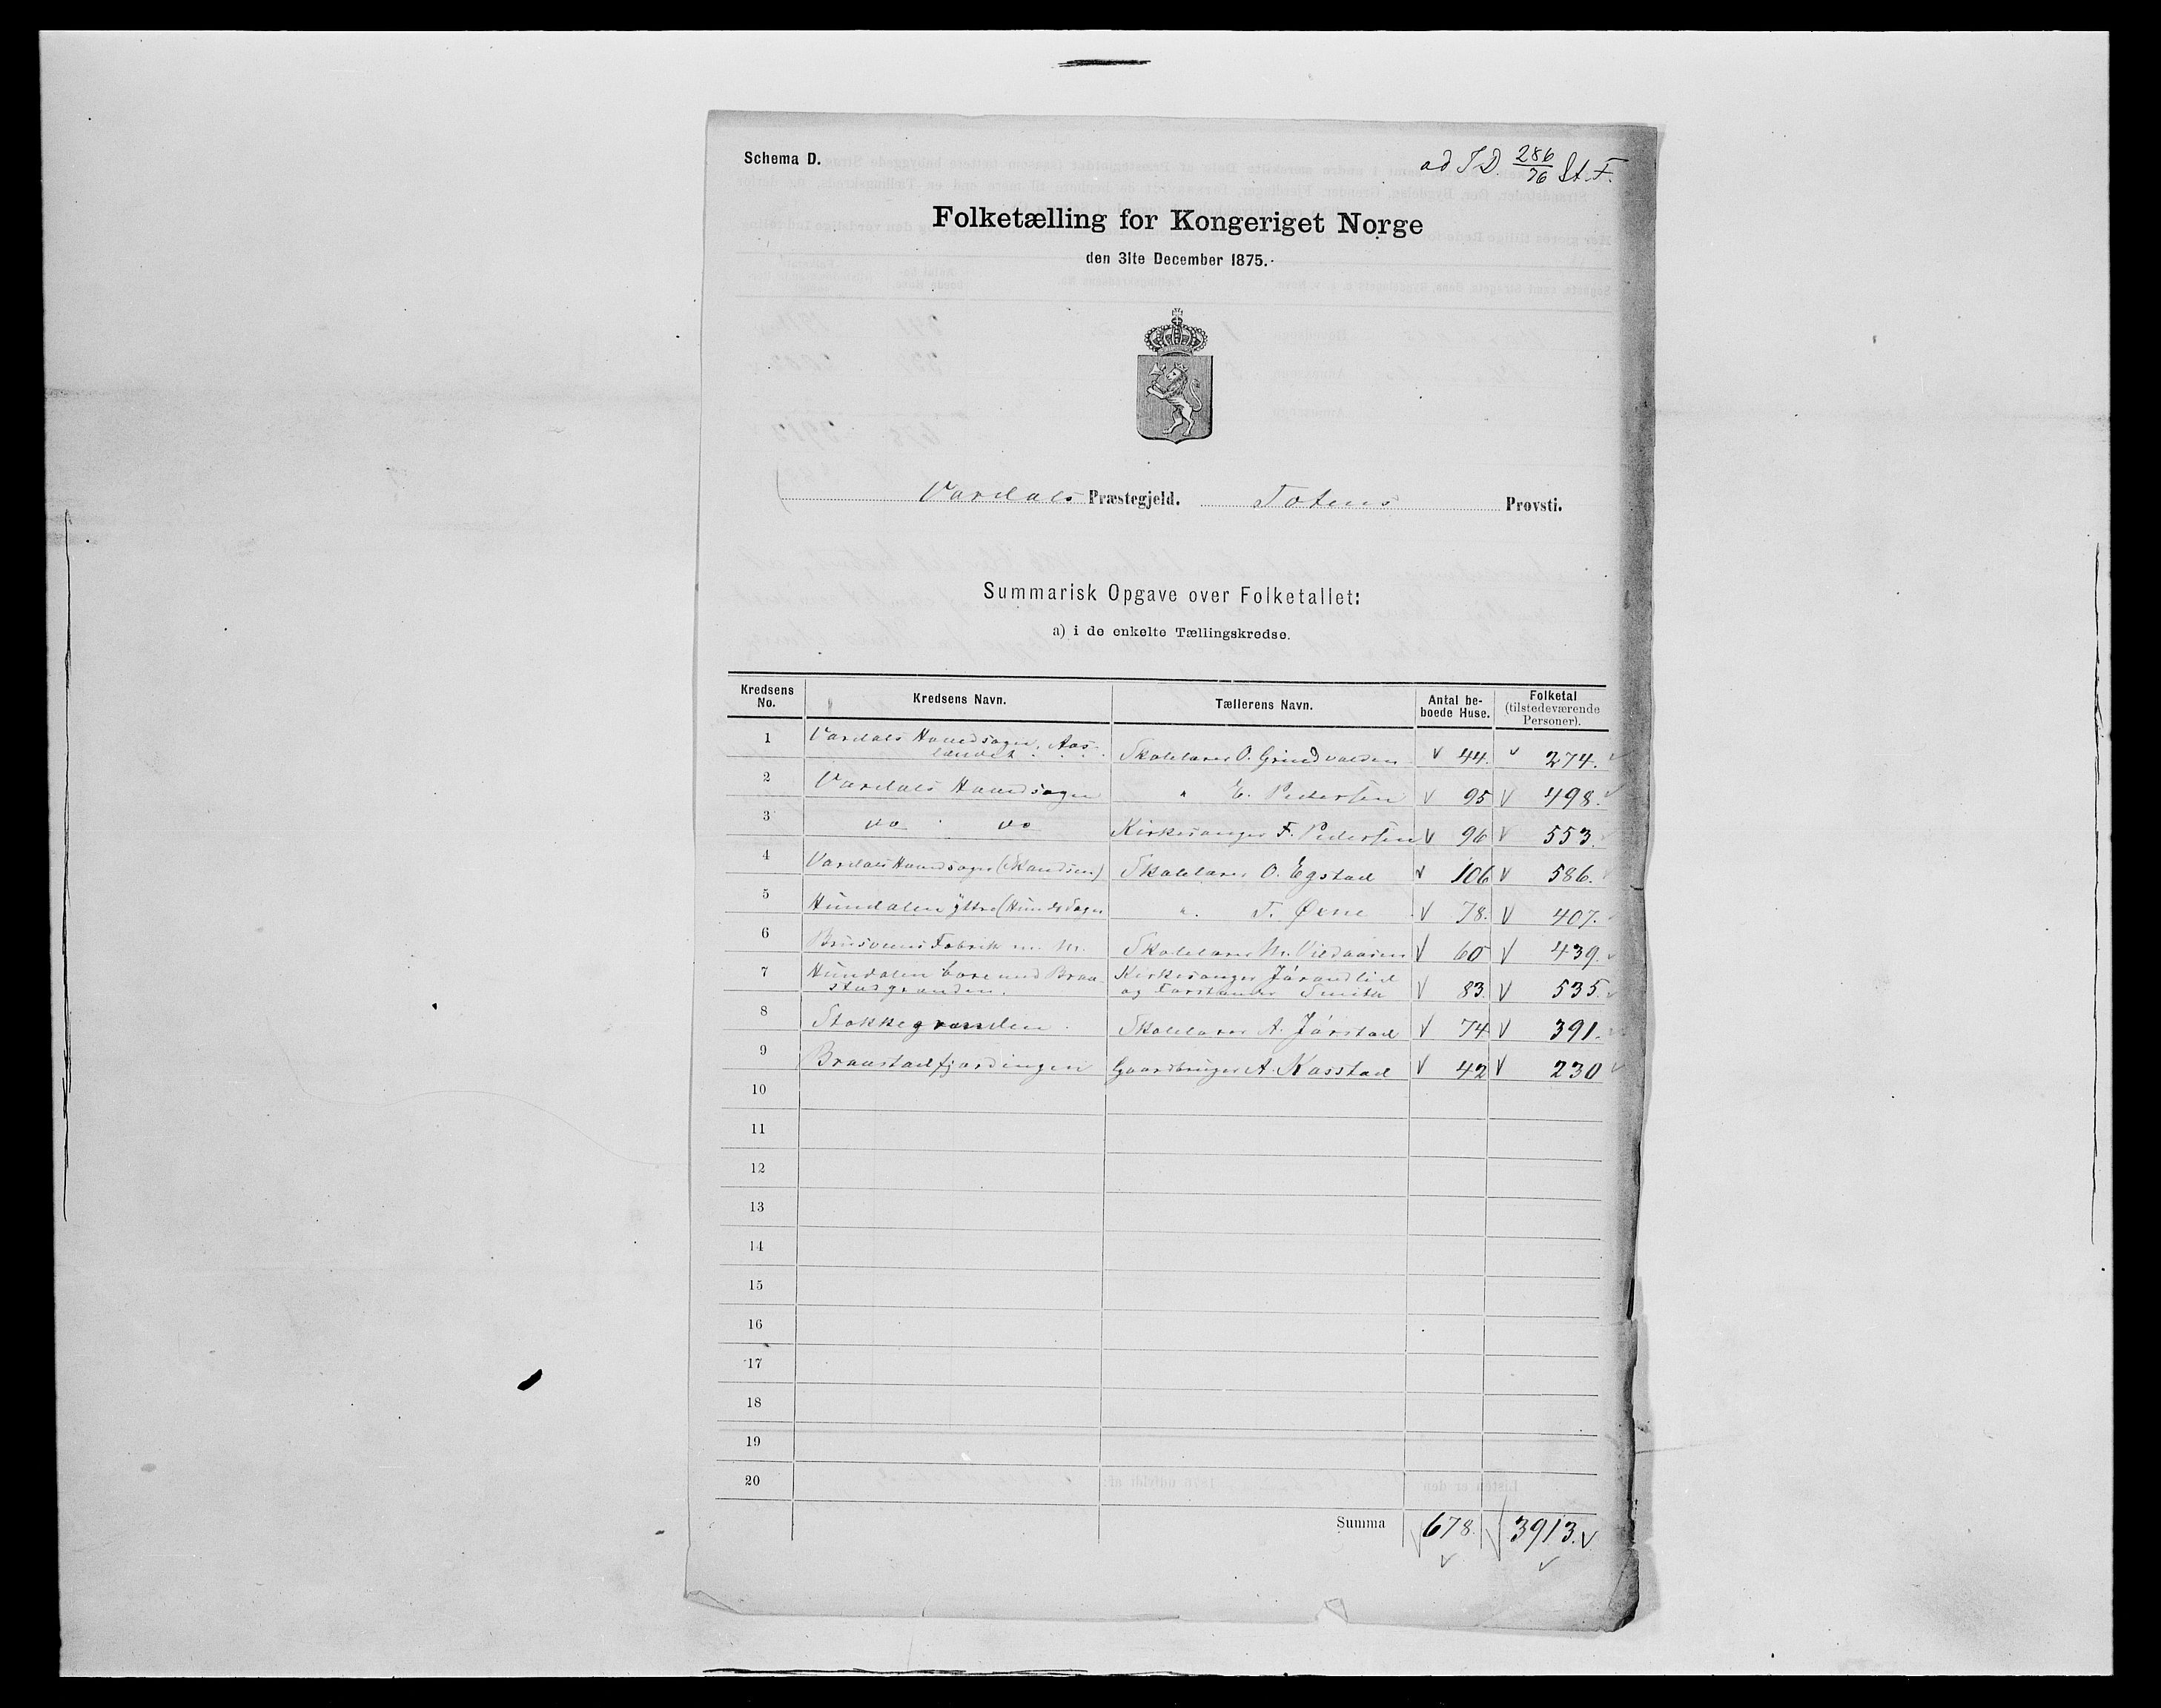 Schema D.
ad J.D. 286/76 St. F.
Folketælling for Kongeriget Norge
den 31te December 1875.
Vardals Præstegjeld. Totens Provsti.
Summarisk Opgave over Folketallet:
a) i de enkelte Tællingskredse.
Kredsens No. Kredsens Navn. Tællerens Navn. Antal beboede Huse. Folketal (tilstedeværende Personer).
1 Vardals Hovedsogn, Aas-
landet. Skolelærer O. Grindvolden 44. 274.
2 Vardals Hovedsogn " E. Pedersen 95 498.
3 do do Kirkesanger F. Pedersen 96 553.
4 Vardals Hovedsogn (Skondsen) Skolelærer O. Egstad 106 586.
5 Hundalen yttre (Hunds Sogn " T. Øvne 78. 407.
6 Brusveens Fabrik m. m. Skolelærer M. 60 439.
7 Hundalen øvre med Braa-
stadgranden. Kirkesanger Jørandlid
og Forstander Smith 83. 535.
8 Stokkegranden Skolelærer A. Jørstad 74 391.
9 Braastadfjordingen Gaardbruger A. Kasstad 42 230
10
11
12
13
14
15
16
17
18
19
20
Summa 678. 3913.